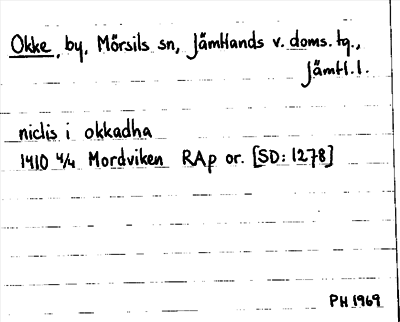 Okke, by, Mörsils sn, Jämtlands v. doms. tg.,
Jämtl. l.
niclis i okkadha
1410 4/4 Mordviken RAp or. [SD: 1278]
PH 1969